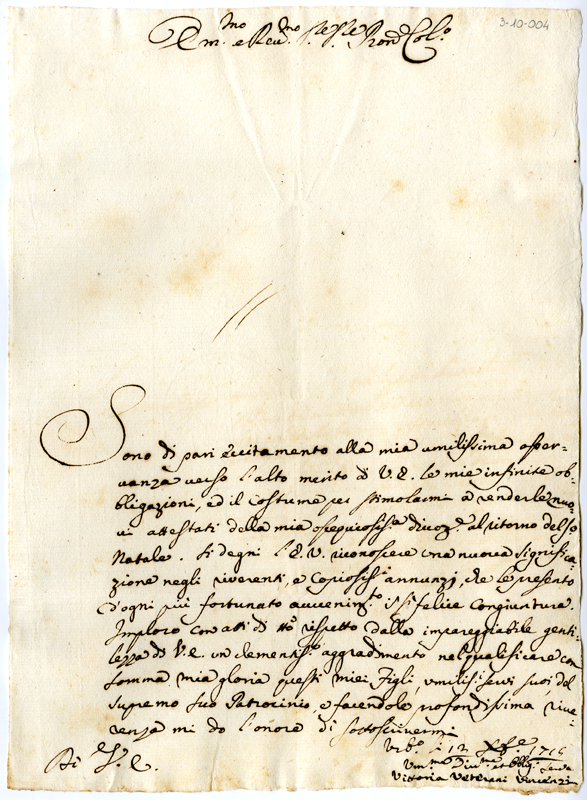 3-10-004
Em.mo e Rev.mo S.re S.re Pron Col.o
Sono di pari eccitamento alla mia umilissima osser-
uanza verso l'alto merito di V.E. le mie infinite ob-
bligazioni, ed il costume per stimolarmi à renderle nuo-
ui attestati della mia ossequiosiss.a diuoz.e al ritorno del S.o
Natale. Si degni l'E.V. riconoscere una nuova significa-
zione negli riverenti, e copiosiss.i annunzj, che le presento
d'ogni più fortunato auuenim.to in sì felice congiuntura.
Imploro con atti di tt.o rispetto dalla impareggiabile genti-
lezza di V.E. un clementiss.o aggradimento nel qualificare con
somma mia gloria questi miei Figli, umiliss.i serui suoi del
supremo suo Patrocinio, e facendole profondissima riue-
renza mi do l'onore di sottoscriuermi
Di V.E.
Urb.o i 12 Xbre 1716
Um.ma Diu.ma et Obblig. Serua
Vittoria Veterani Vincenzi